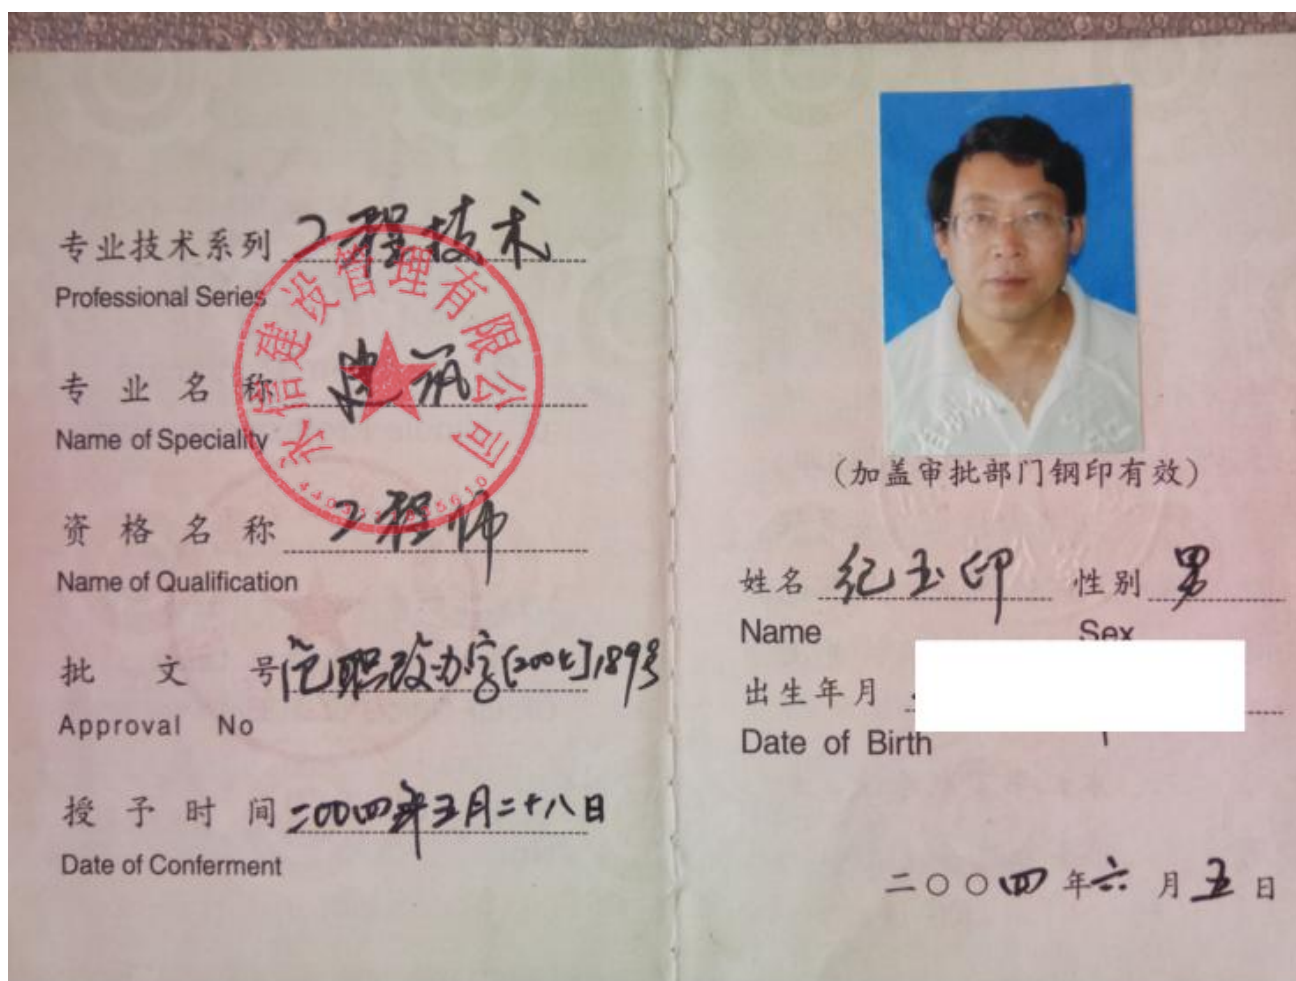 专业技术系列 工程技术
Professional Series
专业名称 建筑
Name of Speciality
资格名称 工程师
Name of Qualification
批文号 职改办字[2004]189号
Approval No
授予时间 二00四年五月二十八日
Date of Conferment
永信建设管理有限公司
(加盖审批部门钢印有效)
姓名 纪玉印 性别 男
Name Sex
出生年月
Date of Birth
二〇〇四年六月五日